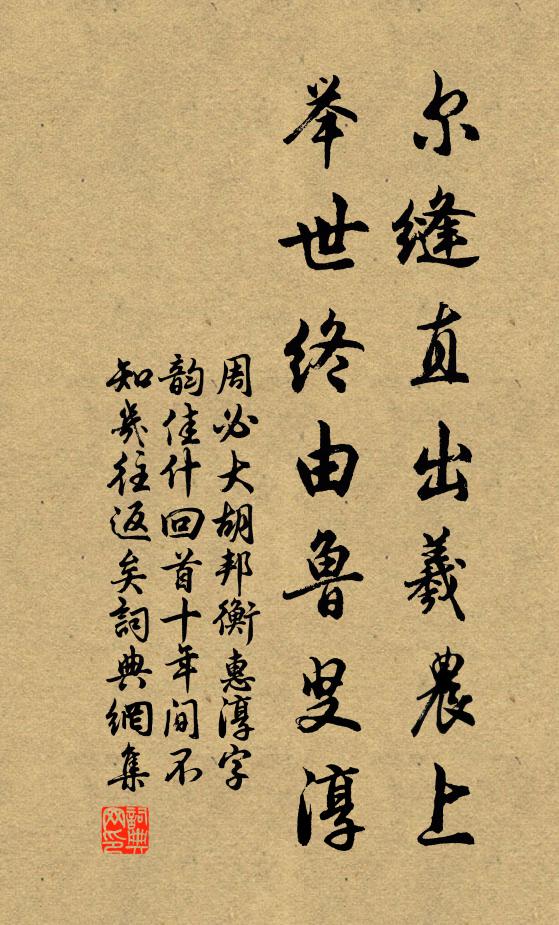 尔缝直出羲農上
举世终由魯叟淳
周必大胡邦衡惠淳字
韵佳什回首十年间不
知幾往返矣詞典網集
詞典网印